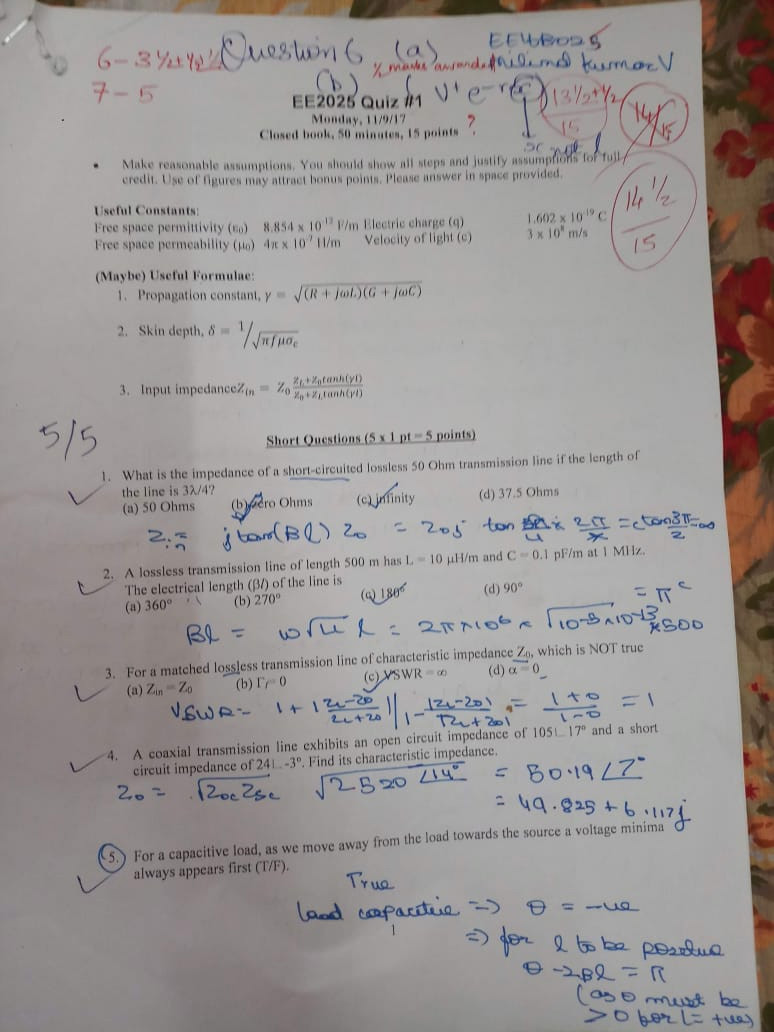 6 - 3 ½ + ½ Question 6 (a) EE4B025
½ marks awarded Nilemd Kumar V
7 - 5 (b) V+ e-r
EE2025 Quiz #1
13 ½ + ½ / 15
14/15
Monday, 11/9/17
Closed book, 50 minutes, 15 points ?
• Make reasonable assumptions. You should show all steps and justify assumptions for full
credit. Use of figures may attract bonus points. Please answer in space provided.
14 ½ / 15
Useful Constants:
Free space permittivity (ε₀) 8.854 x 10⁻¹² F/m Electric charge (q) 1.602 x 10⁻¹⁹ C
Free space permeability (μ₀) 4π x 10⁻⁷ H/m Velocity of light (c) 3 x 10⁸ m/s
(Maybe) Useful Formulae:
1. Propagation constant, γ = √(R + jωL)(G + jωC)
2. Skin depth, δ = 1/√πfμσc
3. Input impedanceZin = Z0 ZL+Z0tanh(γl) / Z0+ZLtanh(γl)
5/5
Short Questions (5 x 1 pt = 5 points)
1. What is the impedance of a short-circuited lossless 50 Ohm transmission line if the length of
the line is 3λ/4?
(a) 50 Ohms (b) Zero Ohms (c) infinity (d) 37.5 Ohms
Zin = j tan(Bl) Z0 = Z0 j tan 2π = tan 3π/2 = ∞
2. A lossless transmission line of length 500 m has L = 10 μH/m and C = 0.1 pF/m at 1 MHz.
The electrical length (βl) of the line is
(a) 360° (b) 270° (c) 180° (d) 90°
= πᶜ
Bl = ω√LC l = 2π×10⁶ × √10⁻⁵×10⁻¹³ × 500
3. For a matched lossless transmission line of characteristic impedance Z0, which is NOT true
(a) Zin = Z0 (b) Γ = 0 (c) VSWR = ∞ (d) α = 0
VSWR = 1 + |ZL-Z0 / ZL+Z0| / 1 - |ZL-Z0| / |ZL+Z0| = 1+0 / 1-0 = 1
4. A coaxial transmission line exhibits an open circuit impedance of 105∟17° and a short
circuit impedance of 24∟-3°. Find its characteristic impedance.
Z0 = √ZocZsc √2520 ∠14° = 50.19∠7°
= 49.825 + 6.117j
5. For a capacitive load, as we move away from the load towards the source a voltage minima
always appears first (T/F).
True
load capacitive => θ = -ve
=> for l to be positive
θ - 2βl = π
(as θ must be
> 0 for l = +ve)
1